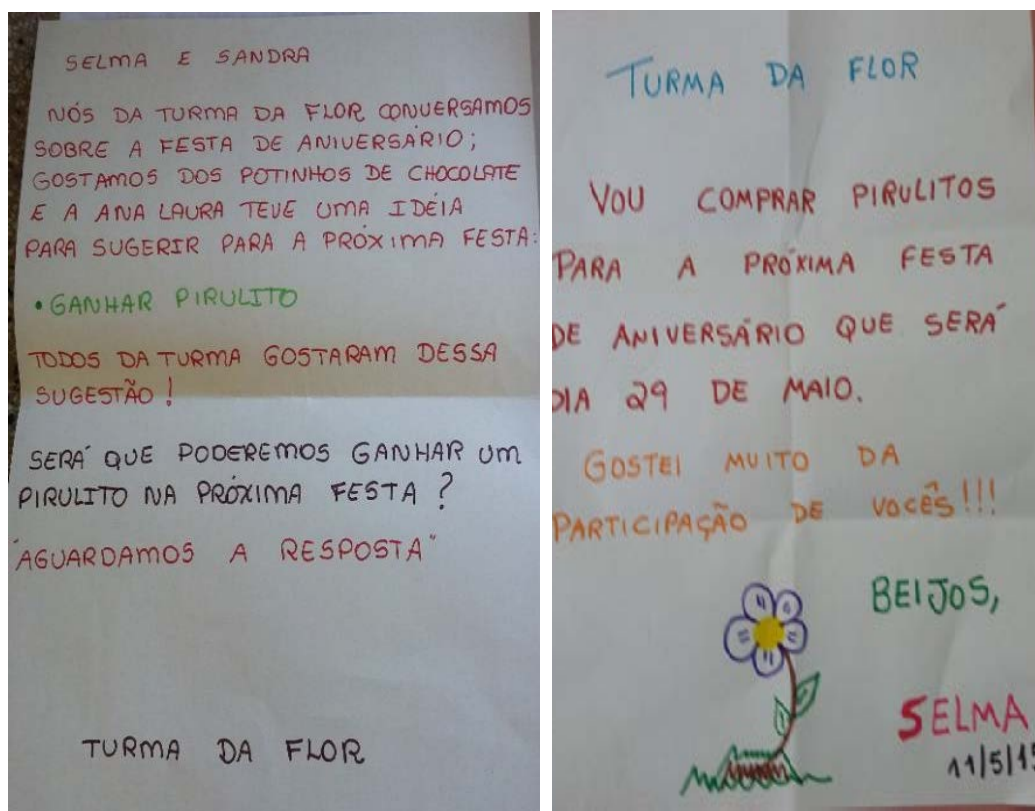 SELMA E SANDRA
NÓS DA TURMA DA FLOR CONVERSAMOS
SOBRE A FESTA DE ANIVERSÁRIO;
GOSTAMOS DOS POTINHOS DE CHOCOLATE
E A ANA LAURA TEVE UMA IDÉIA
PARA SUGERIR PARA A PRÓXIMA FESTA:
• GANHAR PIRULITO
TODOS DA TURMA GOSTARAM DESSA
SUGESTÃO!
SERÁ QUE PODEREMOS GANHAR UM
PIRULITO NA PRÓXIMA FESTA?
"AGUARDAMOS A RESPOSTA"
TURMA DA FLOR
TURMA DA FLOR
VOU COMPRAR PIRULITOS
PARA A PRÓXIMA FESTA
DE ANIVERSÁRIO QUE SERÁ
DIA 29 DE MAIO.
GOSTEI MUITO DA
PARTICIPAÇÃO DE VOCÊS!!!
BEIJOS,
SELMA
11/5/15